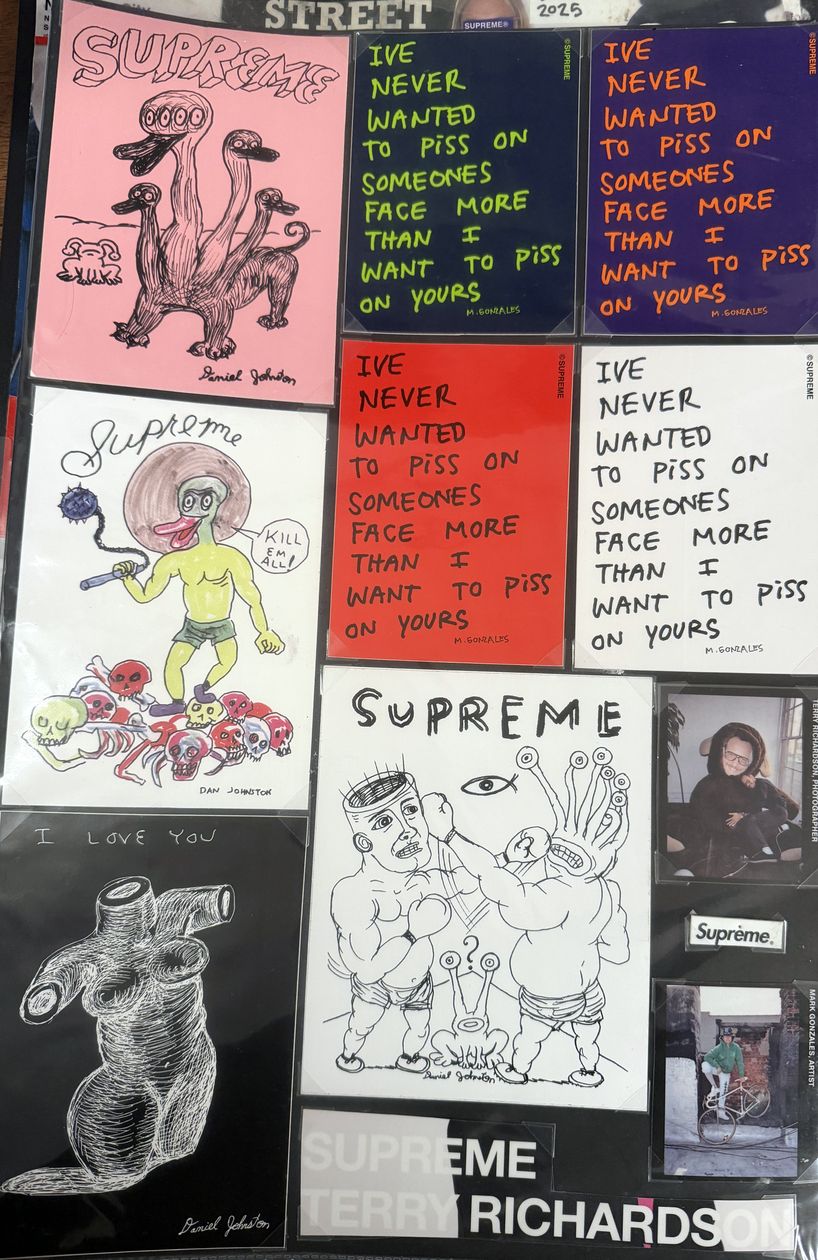 STREET
SUPREME®
2025
SUPREME
Daniel Johnston
IVE
NEVER
WANTED
TO PISS ON
SOMEONES
FACE MORE
THAN I
WANT TO PISS
ON YOURS
M.GONZALES
©SUPREME
IVE
NEVER
WANTED
TO PISS ON
SOMEONES
FACE MORE
THAN I
WANT TO PISS
ON YOURS
M.GONZALES
©SUPREME
IVE
NEVER
WANTED
TO PISS ON
SOMEONES
FACE MORE
THAN I
WANT TO PISS
ON YOURS
M.GONZALES
©SUPREME
IVE
NEVER
WANTED
TO PISS ON
SOMEONES
FACE MORE
THAN I
WANT TO PISS
ON YOURS
M.GONZALES
©SUPREME
Supreme
KILL
EM
ALL!
DAN JOHNSTON
I LOVE YOU
Daniel Johnston
SUPREME
?
?
Daniel Johnston
TERRY RICHARDSON, PHOTOGRAPHER
Suprème.
MARK GONZALES, ARTIST
SUPREME
TERRY RICHARDSON